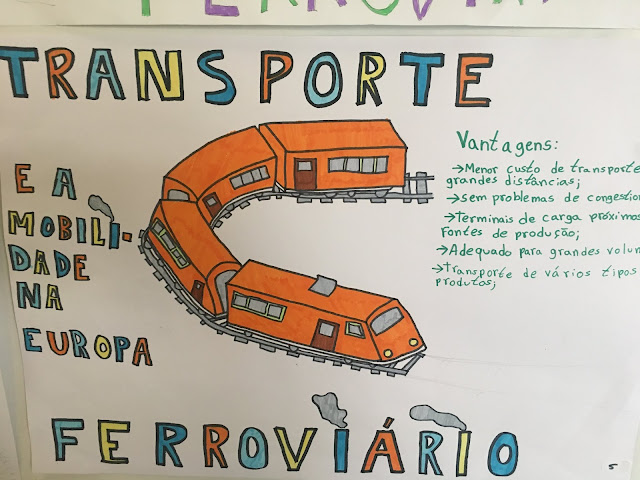 TRANSPORTE
E A
MOBILI-
DADE
NA
EUROPA
Vantagens:
→Menor custo de transporte
grandes distâncias;
→sem problemas de
→terminais de carga próximos
fontes de produção;
→Adequado para grandes
→transporte de vários tipos
produtos;
FERROVIÁRIO
5